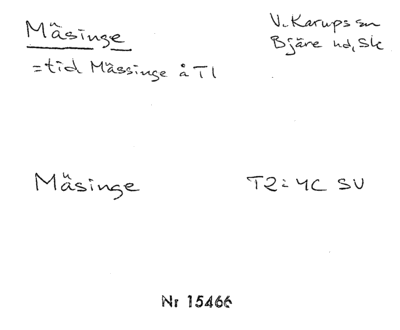 Mäsinge
V. Karups sn
Bjäre hd, Sk
= tid Mässinge å T1
Mäsinge
T2 = 4C SV
Nr 15466